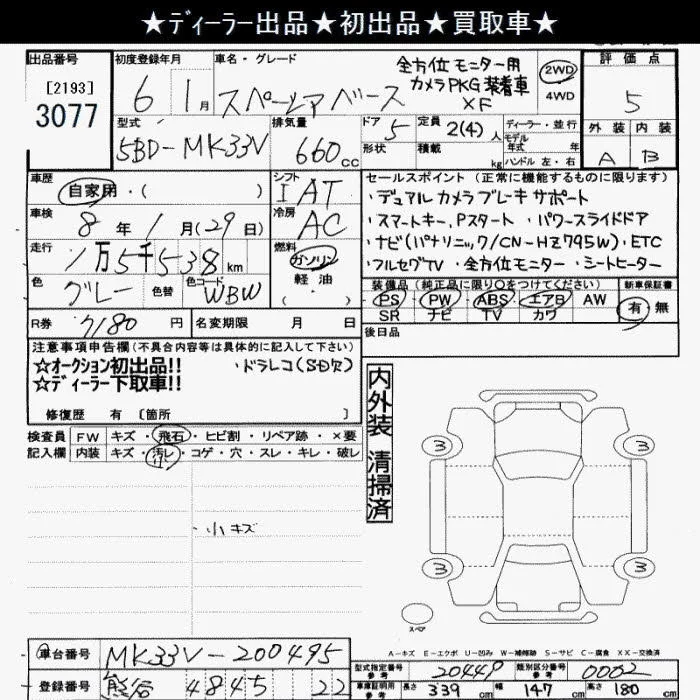 ★ディーラー出品★初出品★買取車★
出品番号
[2193]
3077
初度登録年月
6 1月
車名・グレード
スペーシアベース
全方位モニター用
カメラPKG装着車
XF
2WD
4WD
評価点
5
外装 内装
A B
型式
5BD-MK33V
排気量
660cc
ドア
5
形状
定員
2(4)人
積載
kg
ディーラー・並行
モデル
年式 年
ハンドル 左・右
車歴
自家用・( )
シフト
I AT
車検
8年 1月(29日)
冷房
AC
走行
1万5千538km
燃料
ガソリン
軽油
( )
色
グレー
色替
色コード
WBW
R券
7180円
名変期限 月 日
セールスポイント(正常に機能するものに限ります)
・デュアルカメラブレーキサポート
・スマートキー、Pスタート ・パワースライドドア
・ナビ(パナソニック/CN-HZ795W)・ETC
・フルセグTV ・全方位モニター ・シートヒーター
装備品(純正品に限り○をつけてください)
新車保証書
PS PW ABS エアB AW
SR ナビ TV カワ
有 無
後日品
注意事項申告欄(不具合内容等は具体的に記入して下さい)
☆オークション初出品!!
☆ディーラー下取車!!
・ドラレコ(SD欠)
修復歴 有 [箇所 ]
検査員
記入欄
FW キズ・飛石・ヒビ割・リペア跡・×要
内装 キズ・汚レ・コゲ・穴・スレ・キレ・破レ
小
・小キズ
内外装 清掃済
3
3
3
3
スペア
A-キズ E-エクボ U-凹み W-補修跡 S-サビ C-腐食 XX-交換済
車台番号
MK33V-200495
登録番号
熊谷 4845 22
型式指定番号
参考
20449
類別区分番号
参考
0002
車庫証明用
参考
長さ 339cm 幅 147cm 高さ 180cm